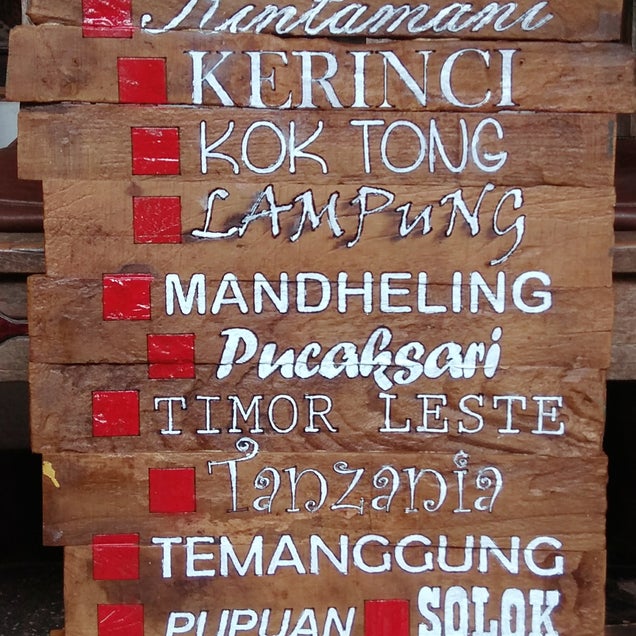 Kintamani
KERINCI
KOK TONG
LAMPuNG
MANDHELING
Pucaksari
TIMOR LESTE
Tanzania
TEMANGGUNG
PUPUAN SOLOK